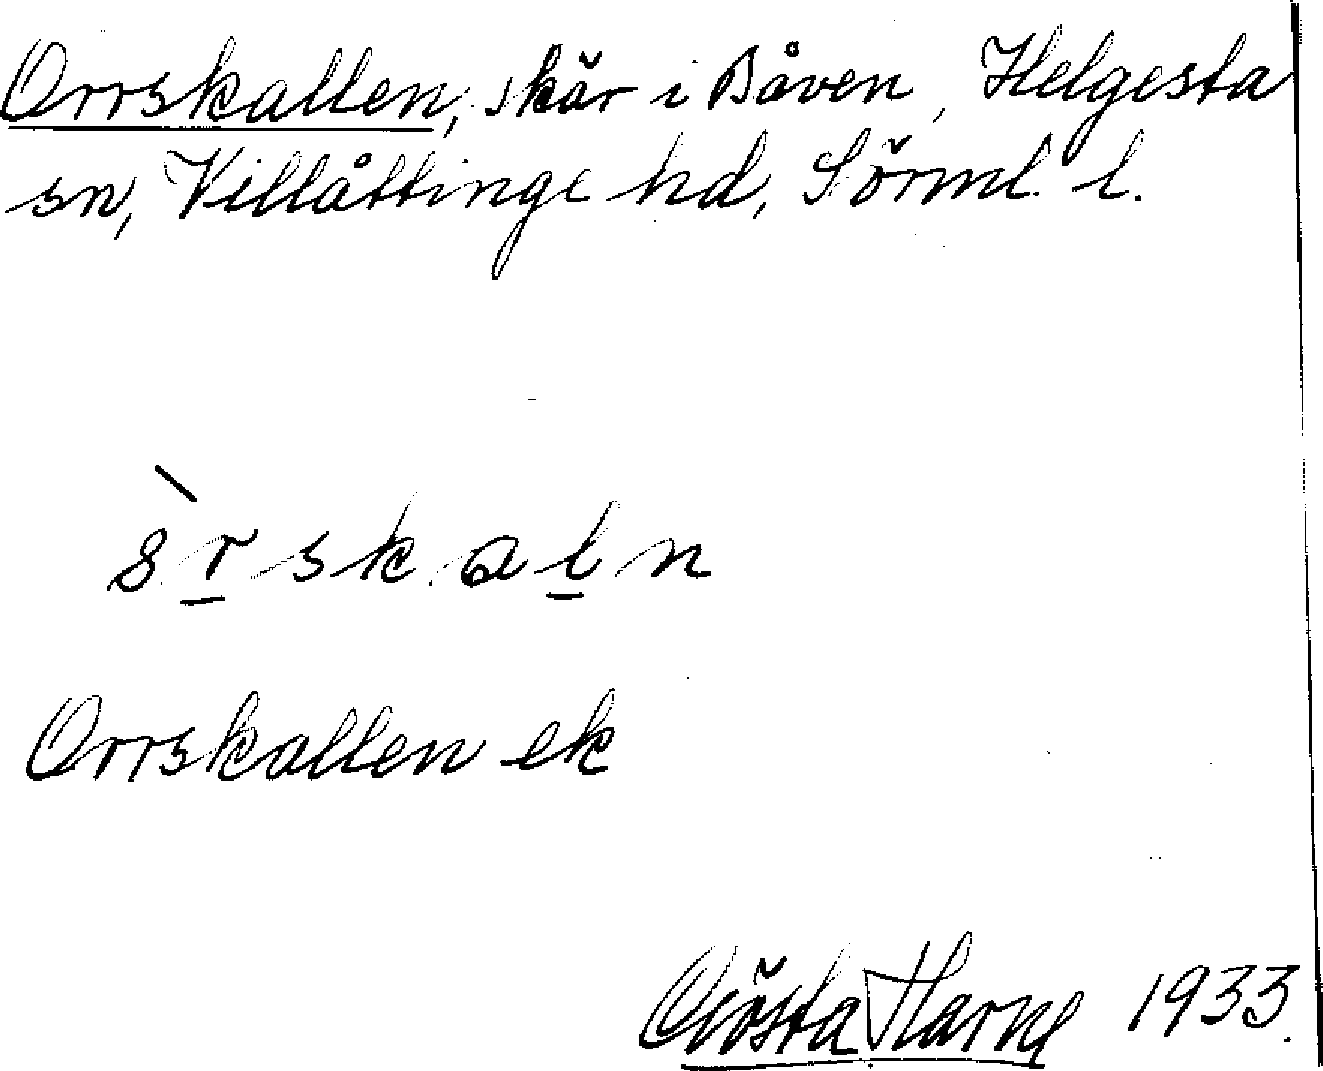 Orrskallen, skär i Båven, Helgesta
sn, Villåttinge hd, Sörml. l.
Orrskallen ek
Gösta 1933.